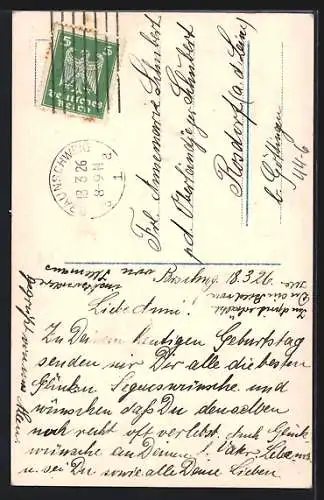 5 5
Deutsches
Reich
BRAUNSCHWEIG
18.3.26
8-9 N
Frl. Annemarie Schubert
pd. Oberlandjäger Schubert
Rosdorf (a. d. Leine)
b. Göttingen
Brschwg. 18.3.26.
Liebe Anni!
Zu Deinem heutigen Geburtstag
senden wir Dir alle die besten
Glück u. Segenswünsche und
wünschen daß Du denselben
noch recht oft verlebst. Auch Glück-
wünsche an Deinen l. Vater.
u. sei Du sowie alle Deine Lieben